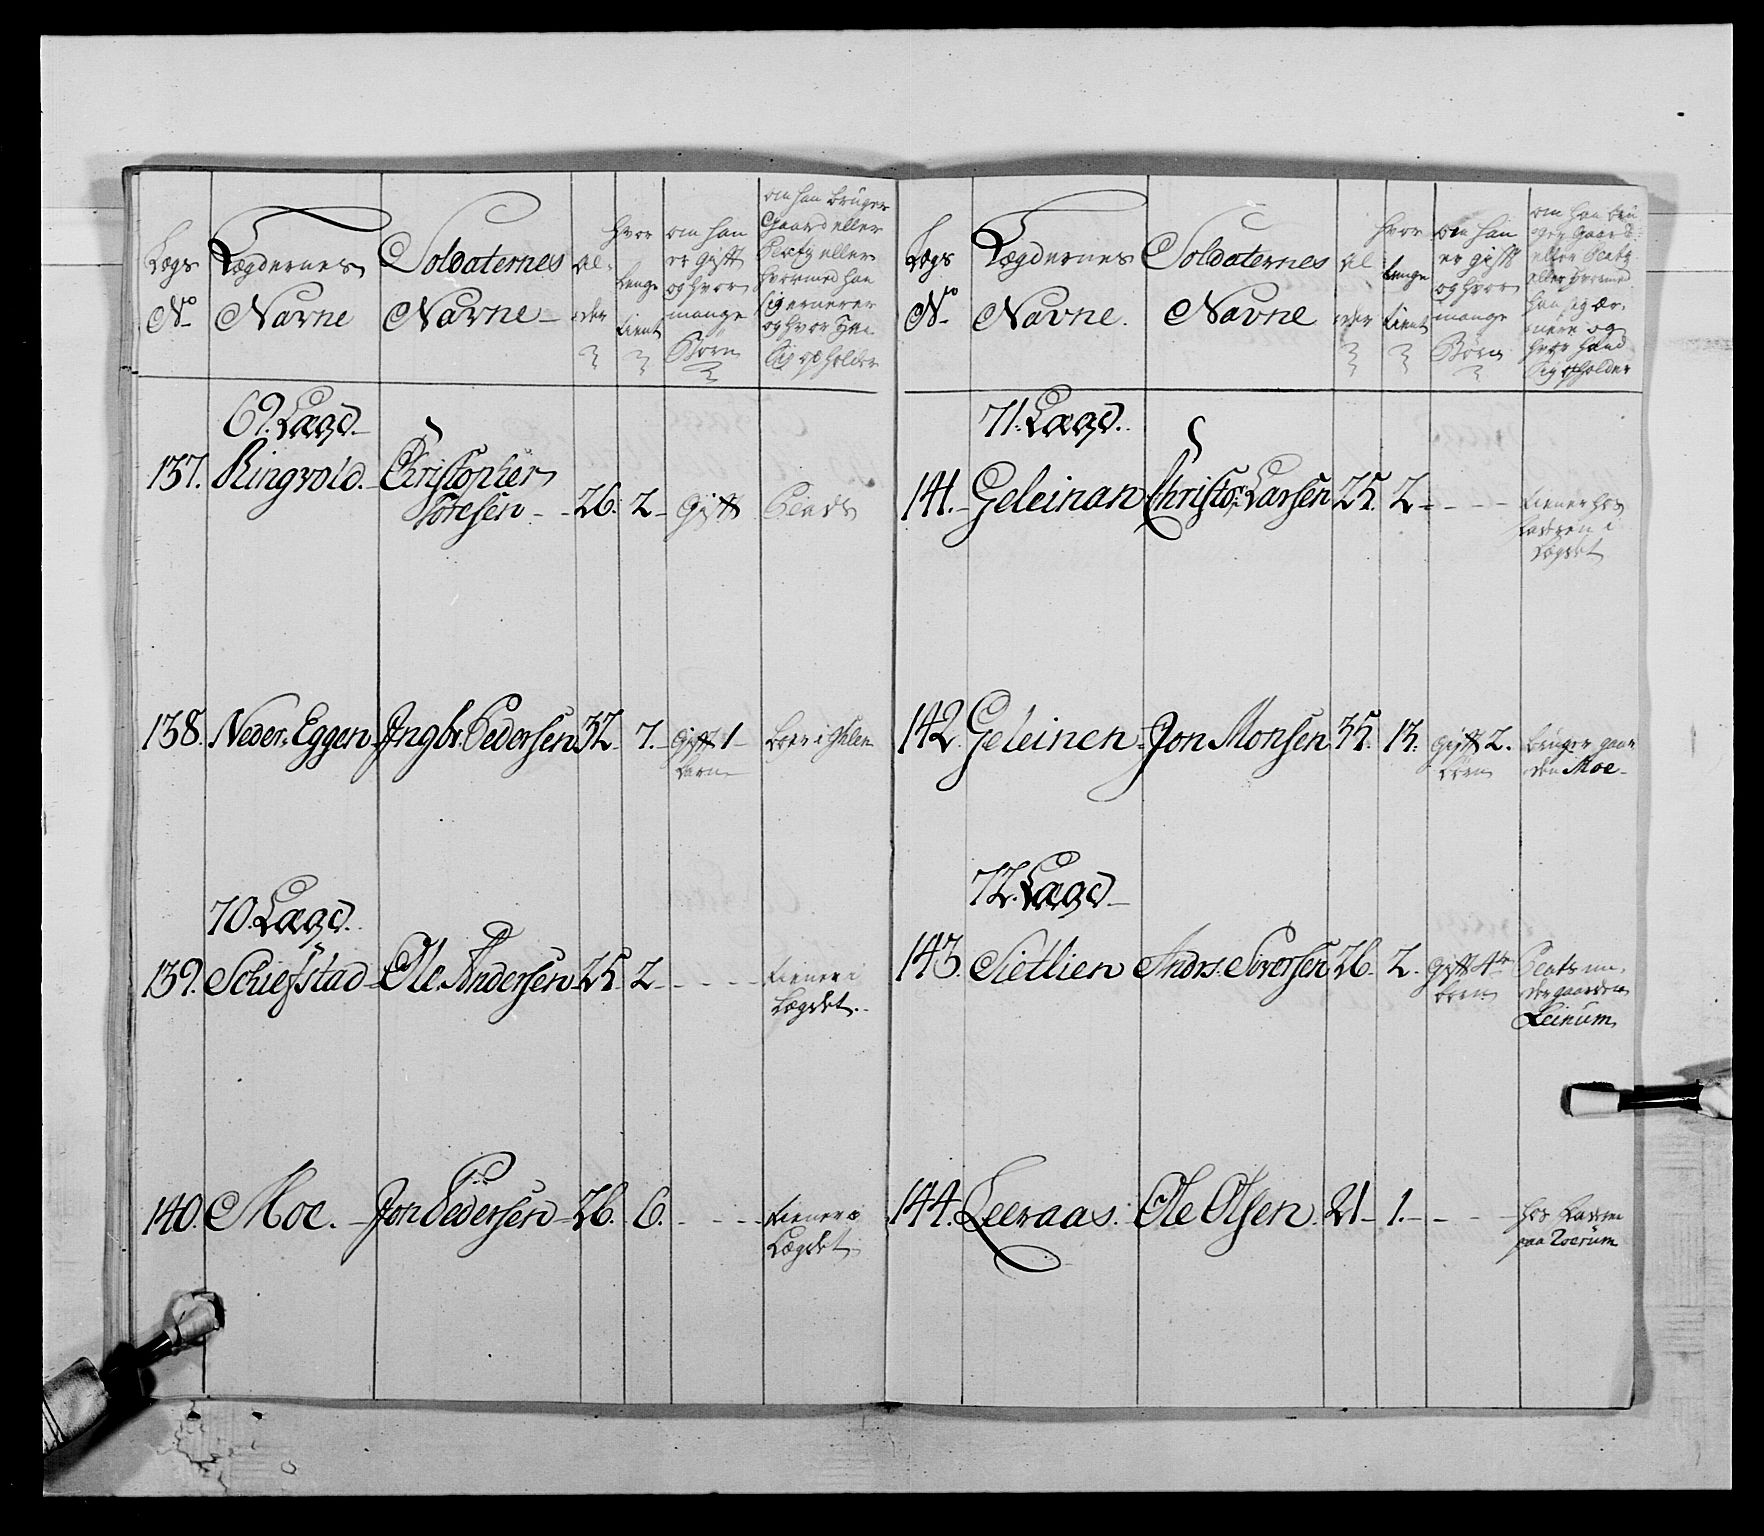 Lægs
No
Lægdernes
Navne
Soldaternes
Navne
Al-
der
hvor
lenge
tient
om han
er gift
og hvor
mange
Børn
om han bruger
Gaard eller
Plads eller
hvormed han
sig ernerer
og hvor
sig opholder
69. Lægd.
137. Ringvold. Christopher
Toresen 26. 2 gift Plads
138. Neder Eggen Ingbr. Pedersen 32. 7. gift 1
barn
70. Lægd.
139. Schiefstad Ole Andersen 25 2 tiener i
Lægdet.
140. Moe. Jon Pedersen 26. 6. tiener i
Lægdet
Lægs
No
Lægdernes
Navne.
Soldaternes
Navne
Al
der
hvor
lenge
tient
om han
er gift
og hvor
mange
Børn
om han bru
ger Gaard
eller Plads
eller hvormed
han sig ær-
nere og
hvor hand
sig opholder
71. Lægd.
141. Geleinan Christo: Larsen 25. 2 tiener hos
i
Lægdet
142. Geleinen Jon Monsen 35. 13. gift 2. bruger gaar
børn den Moe
72. Lægd
143. Sietlien Andrs. Siversen 26. 2. gift 4re Plads un-
børn der gaarden
Leinum
144. Leeraas. Ole Olsen 21 1. hos
paa